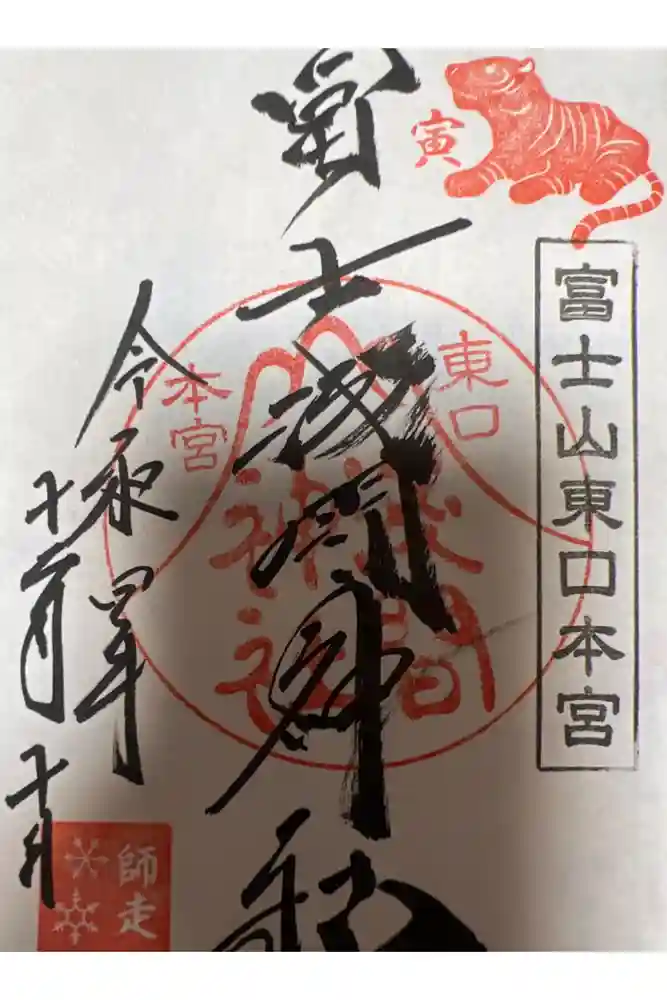 寅
富士山東口本宮
東口
本宮
浅間
神社
冨士浅間神社
令和四年
十二月十日
師走